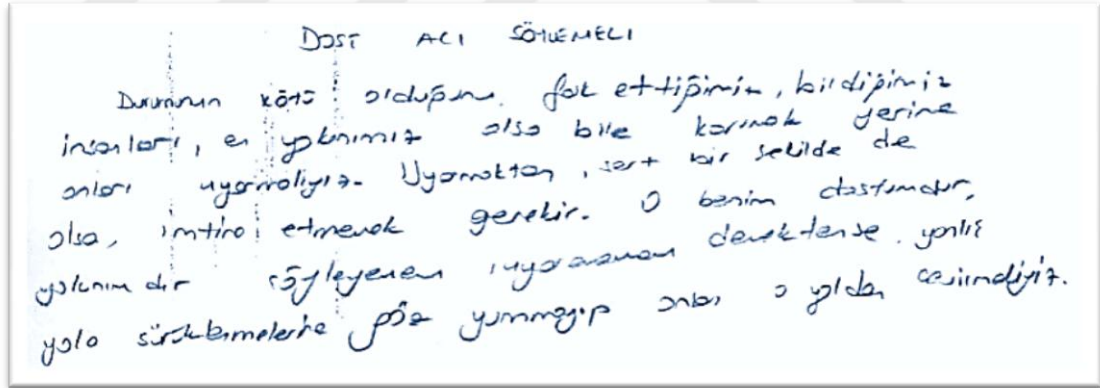 DOST ACI SÖYLEMELİ
Durumunun kötü olduğunu fark ettiğimiz, bildiğimiz
insanları, en yakınımız olsa bile korumak yerine
onları uyarmalıyız. Uyarmaktan, sert bir şekilde de
olsa, imtina etmemek gerekir. O benim dostumdur,
yakınımdır söyleyemem uyaramam demektense yanlış
yola sürüklenmelerine göz yummayıp onları o yoldan çevirmeliyiz.